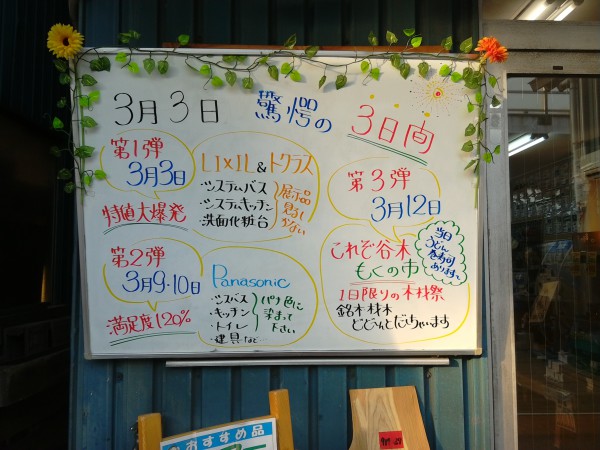 3月3日 驚愕の
3日間
第1弾
3月3日
特値大爆発
LIXIL&トクラス
・システムバス
・システムキッチン
・洗面化粧台
展示品
見るしか
ない
第2弾
3月9・10日
満足度120%
Panasonic
・シスバス
・キッチン
・トイレ
・建具など
パナ色に
染まって
下さい
第3弾
3月12日
これぞ谷木
もくの市
当日
うどん
あります
1日限りの木材祭
銘木材木
どどーんとだしちゃいます
おすすめ品